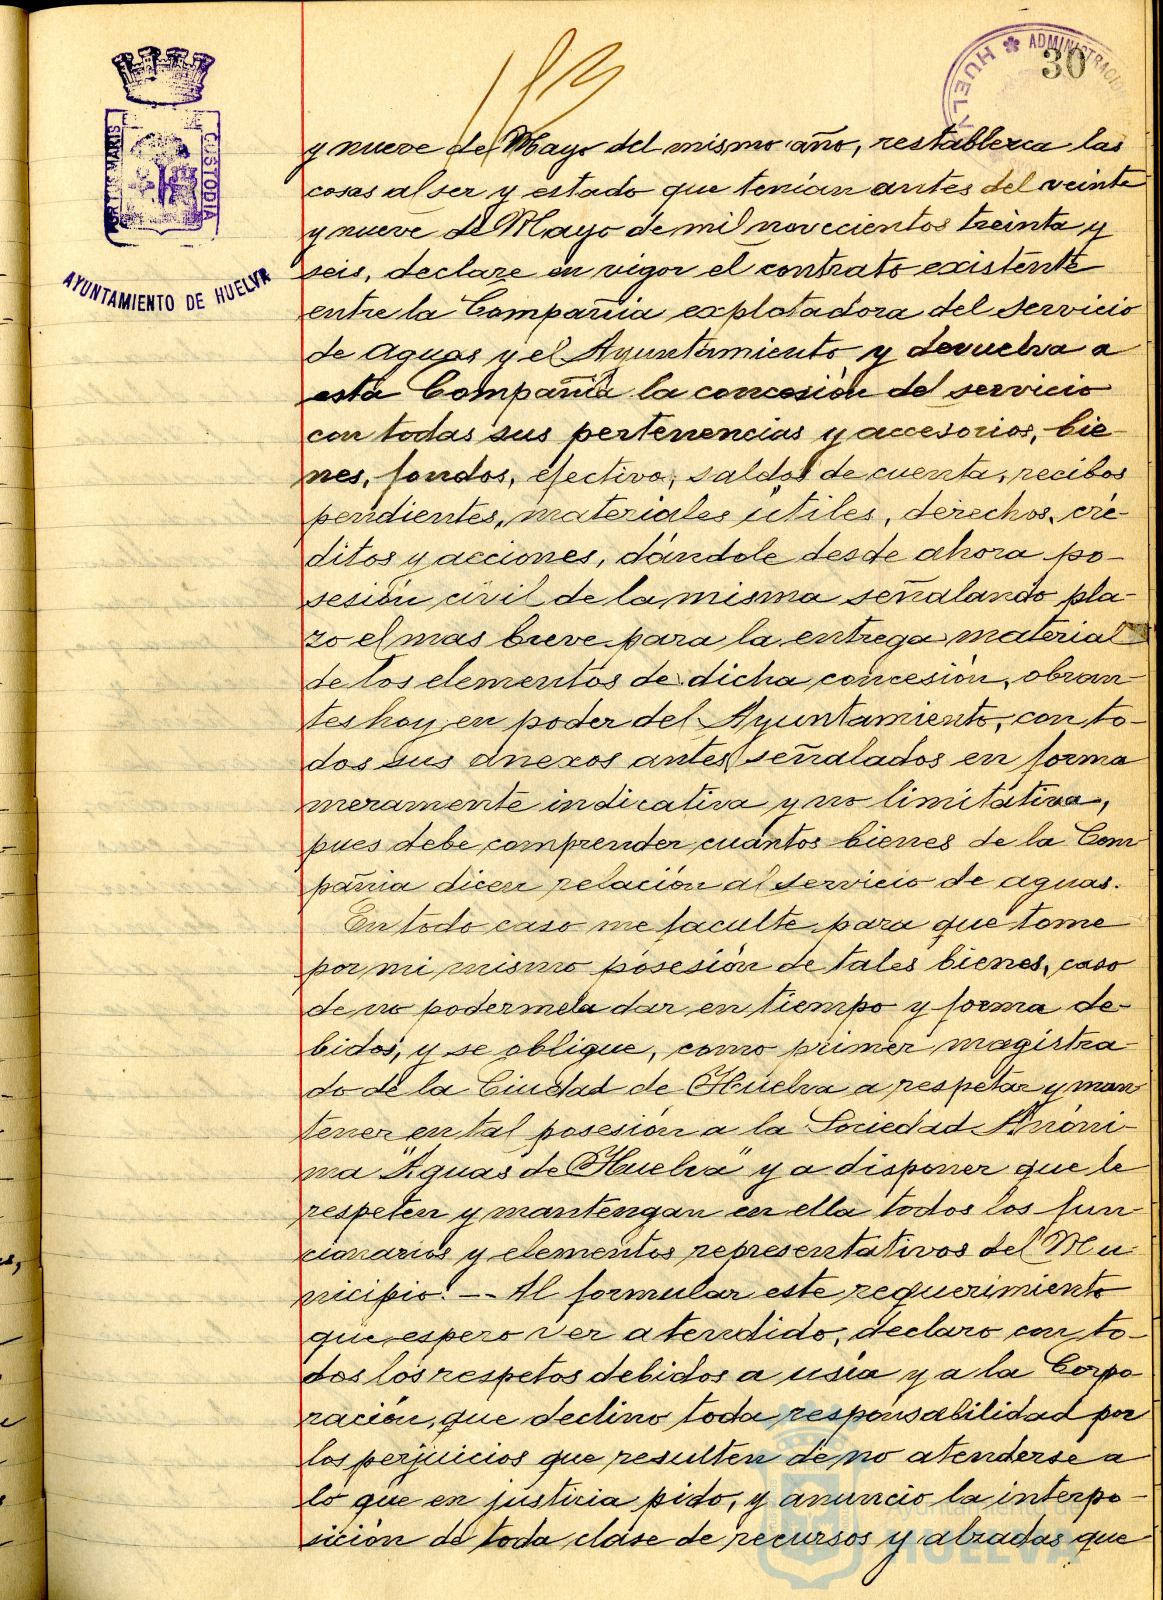 ADMINISTRACION
HUELVA
30
PORTUS MARIS
CUSTODIA
AYUNTAMIENTO DE HUELVA
y nueve de Mayo del mismo año, restablezca las
cosas al ser y estado que tenían antes del veinte
y nueve de Mayo de mil novecientos treinta y
seis, declare en vigor el contrato existente
entre la Compañia explotadora del servicio
de aguas y el Ayuntamiento y devuelva a
esta Compañia la concesión del servicio
con todas sus pertenencias y accesorios, bie-
nes, fondos, efectivo, saldos de cuenta, recibos
pendientes, materiales útiles, derechos, cré-
ditos y acciones, dándole desde ahora po-
sesión civil de la misma señalando pla-
zo el mas breve para la entrega material
de los elementos de dicha concesión, obran-
tes hoy en poder del Ayuntamiento, con to-
dos sus anexos antes señalados en forma
meramente indicativa y no limitativa,
pues debe comprender cuantos bienes de la Com-
pañia dicen relación al servicio de aguas.
En todo caso me faculte para que tome
por mi mismo posesión de tales bienes, caso
de no podermela dar en tiempo y forma de-
bidos, y se obligue, como primer magistra-
do de la Ciudad de Huelva a respetar y man-
tener en tal posesión a la Sociedad Anóni-
ma "Aguas de Huelva" y a disponer que le
respeten y mantengan en ella todos los fun-
cionarios y elementos representativos del Mu-
nicipio. — Al formular este requerimiento
que espero ver atendido, declaro con to-
dos los respetos debidos a usia y a la Corpo-
ración, que declino toda responsabilidad por
los perjuicios que resulten de no atenderse a
lo que en justicia pido, y anuncio la interpo-
sición de toda clase de recursos y alzadas que
Ayuntamiento de
HUELVA